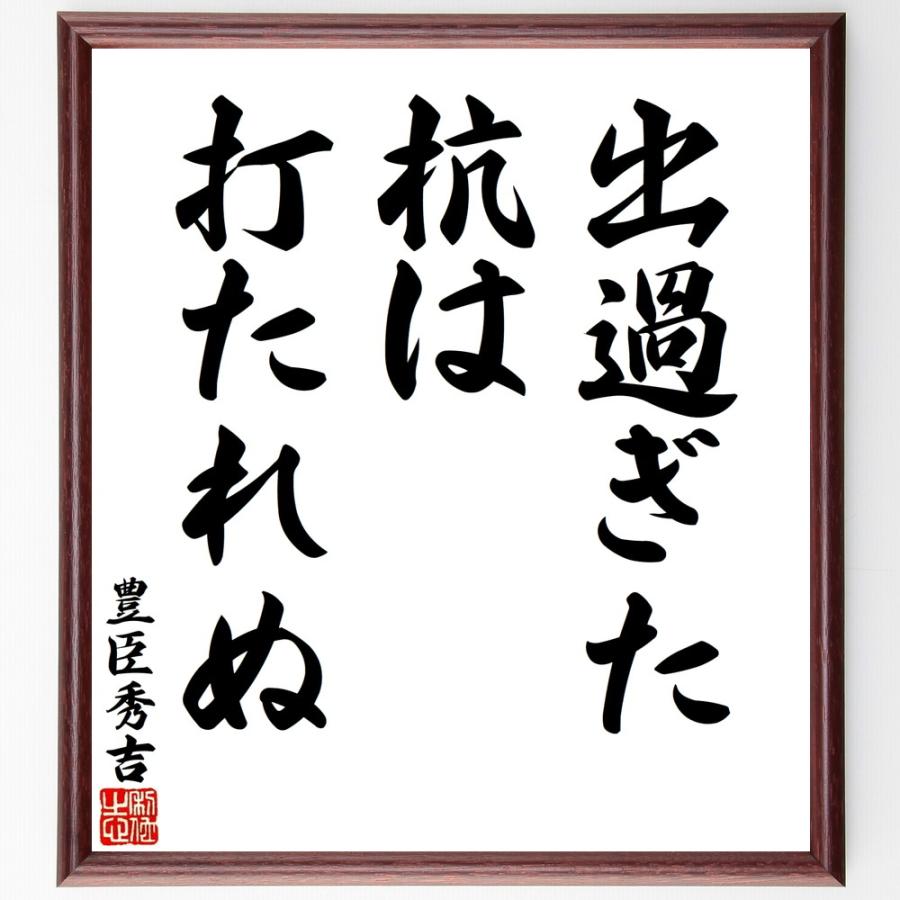 出過ぎた
杭は
打たれぬ
豊臣秀吉